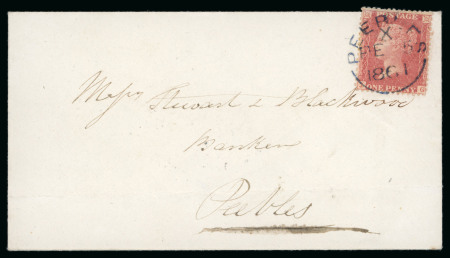 PEEBLES
X
1861
POSTAGE
ONE PENNY
Messrs Stuart & Blackwood
Bankers
Peebles